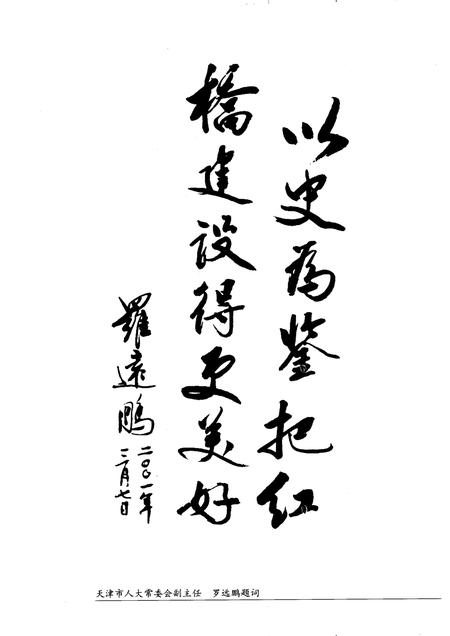 以史为鉴把红
橋建設得更美好
羅遠鵬
二〇〇一年
二月七日
天津市人大常委会副主任 罗远鹏题词